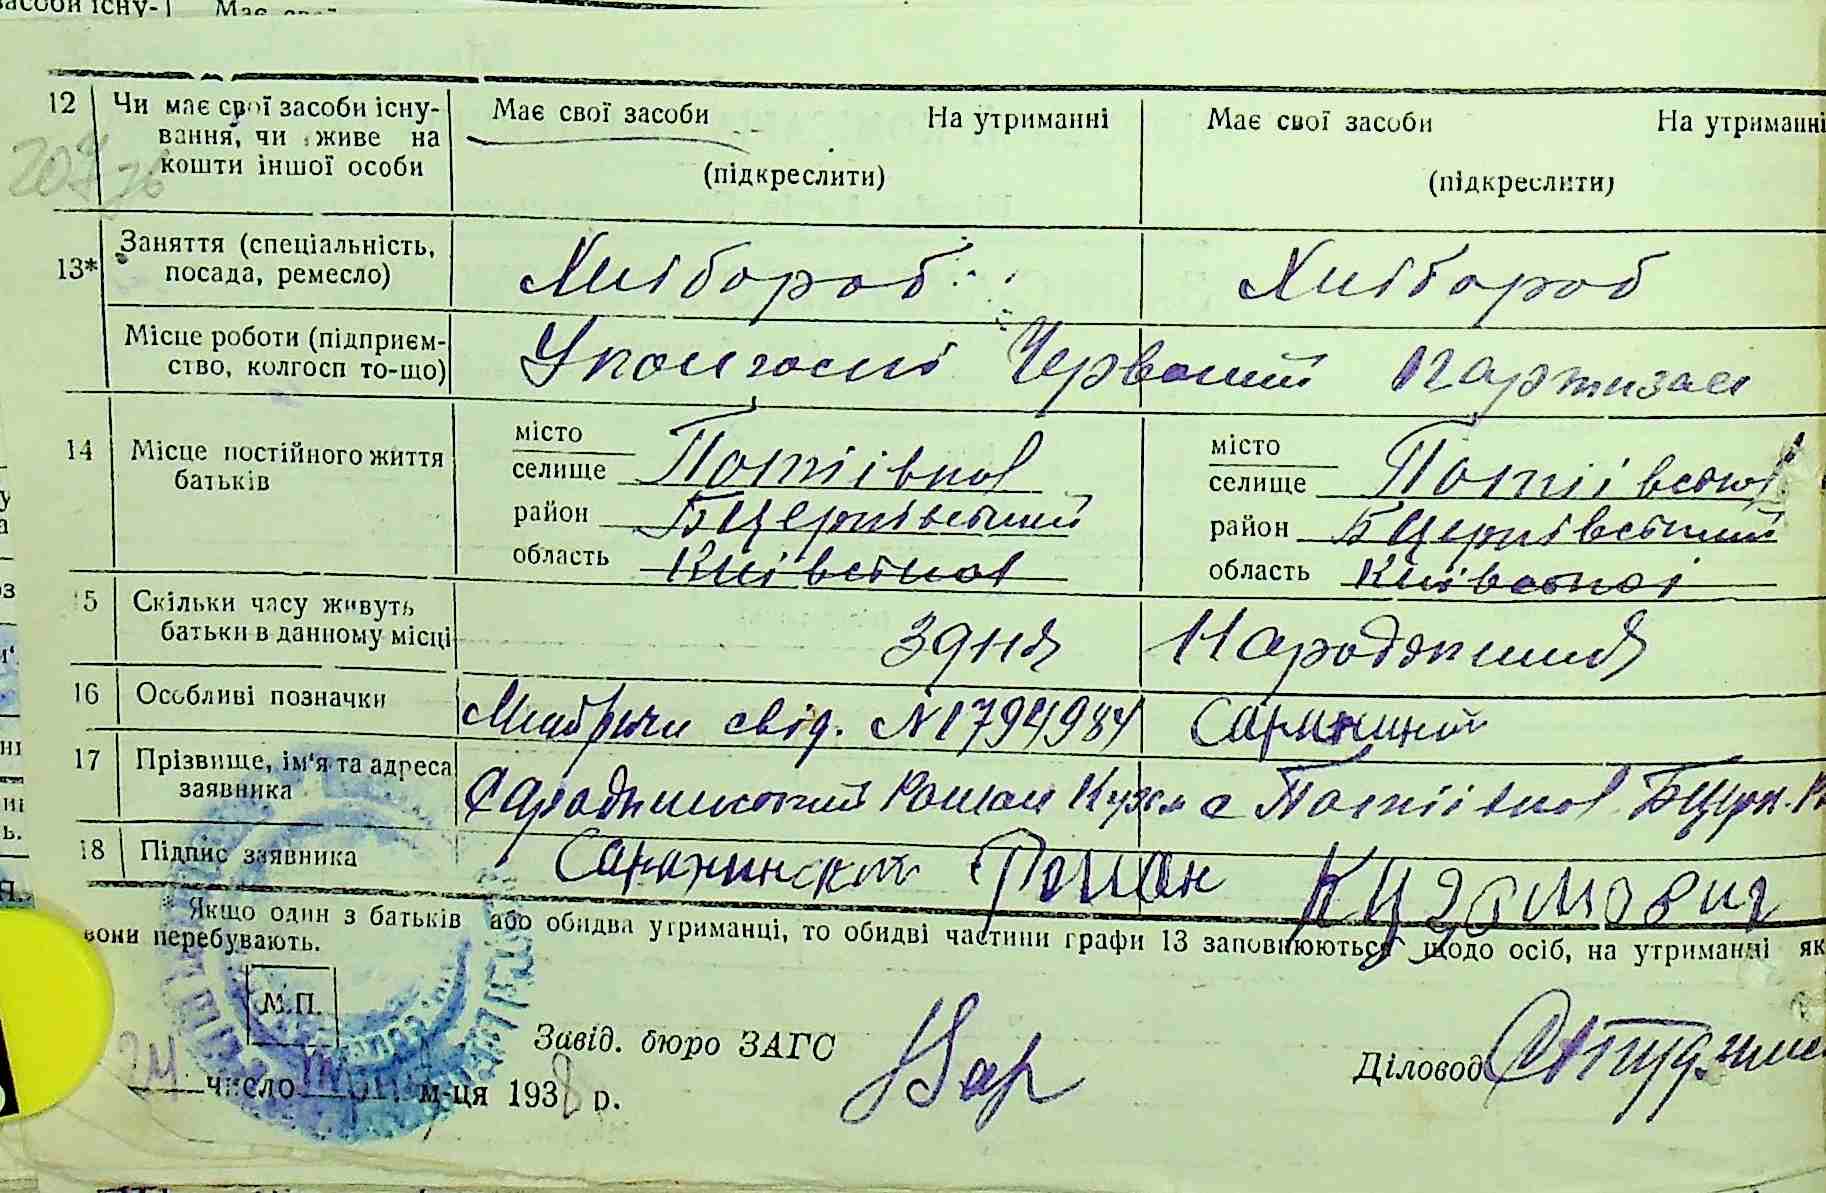 12 Чи має свої засоби існу- Має свої засоби На утриманні Має свої засоби На утриманні
вання, чи живе на
кошти іншої особи (підкреслити) (підкреслити)
207
26
13* Заняття (спеціальність, Хлібороб Хлібороб
посада, ремесло)
Місце роботи (підприєм- У колгоспі Червоний Партизан
ство, колгосп то-що)
14 Місце постійного життя місто місто
батьків селище Потіївка селище Потіївська
район БЦерківський район БЦерківський
область Київської область Київської
15 Скільки часу живуть Здня Народження
батьки в данному місці
16 Особливі позначки свід. N 1794984
17 Прізвище, ім'я та адреса Роман Кузм с Потіївка БЦерк.
заявника
18 Підпис заявника Роман Кузьмович
* Якщо один з батьків або обидва утриманці, то обидві частини графи 13 заповнюються щодо осіб, на утриманні як
вони перебувають.
М.П.
Завід. бюро ЗАГС Діловод
24 число м-ця 1938 р.